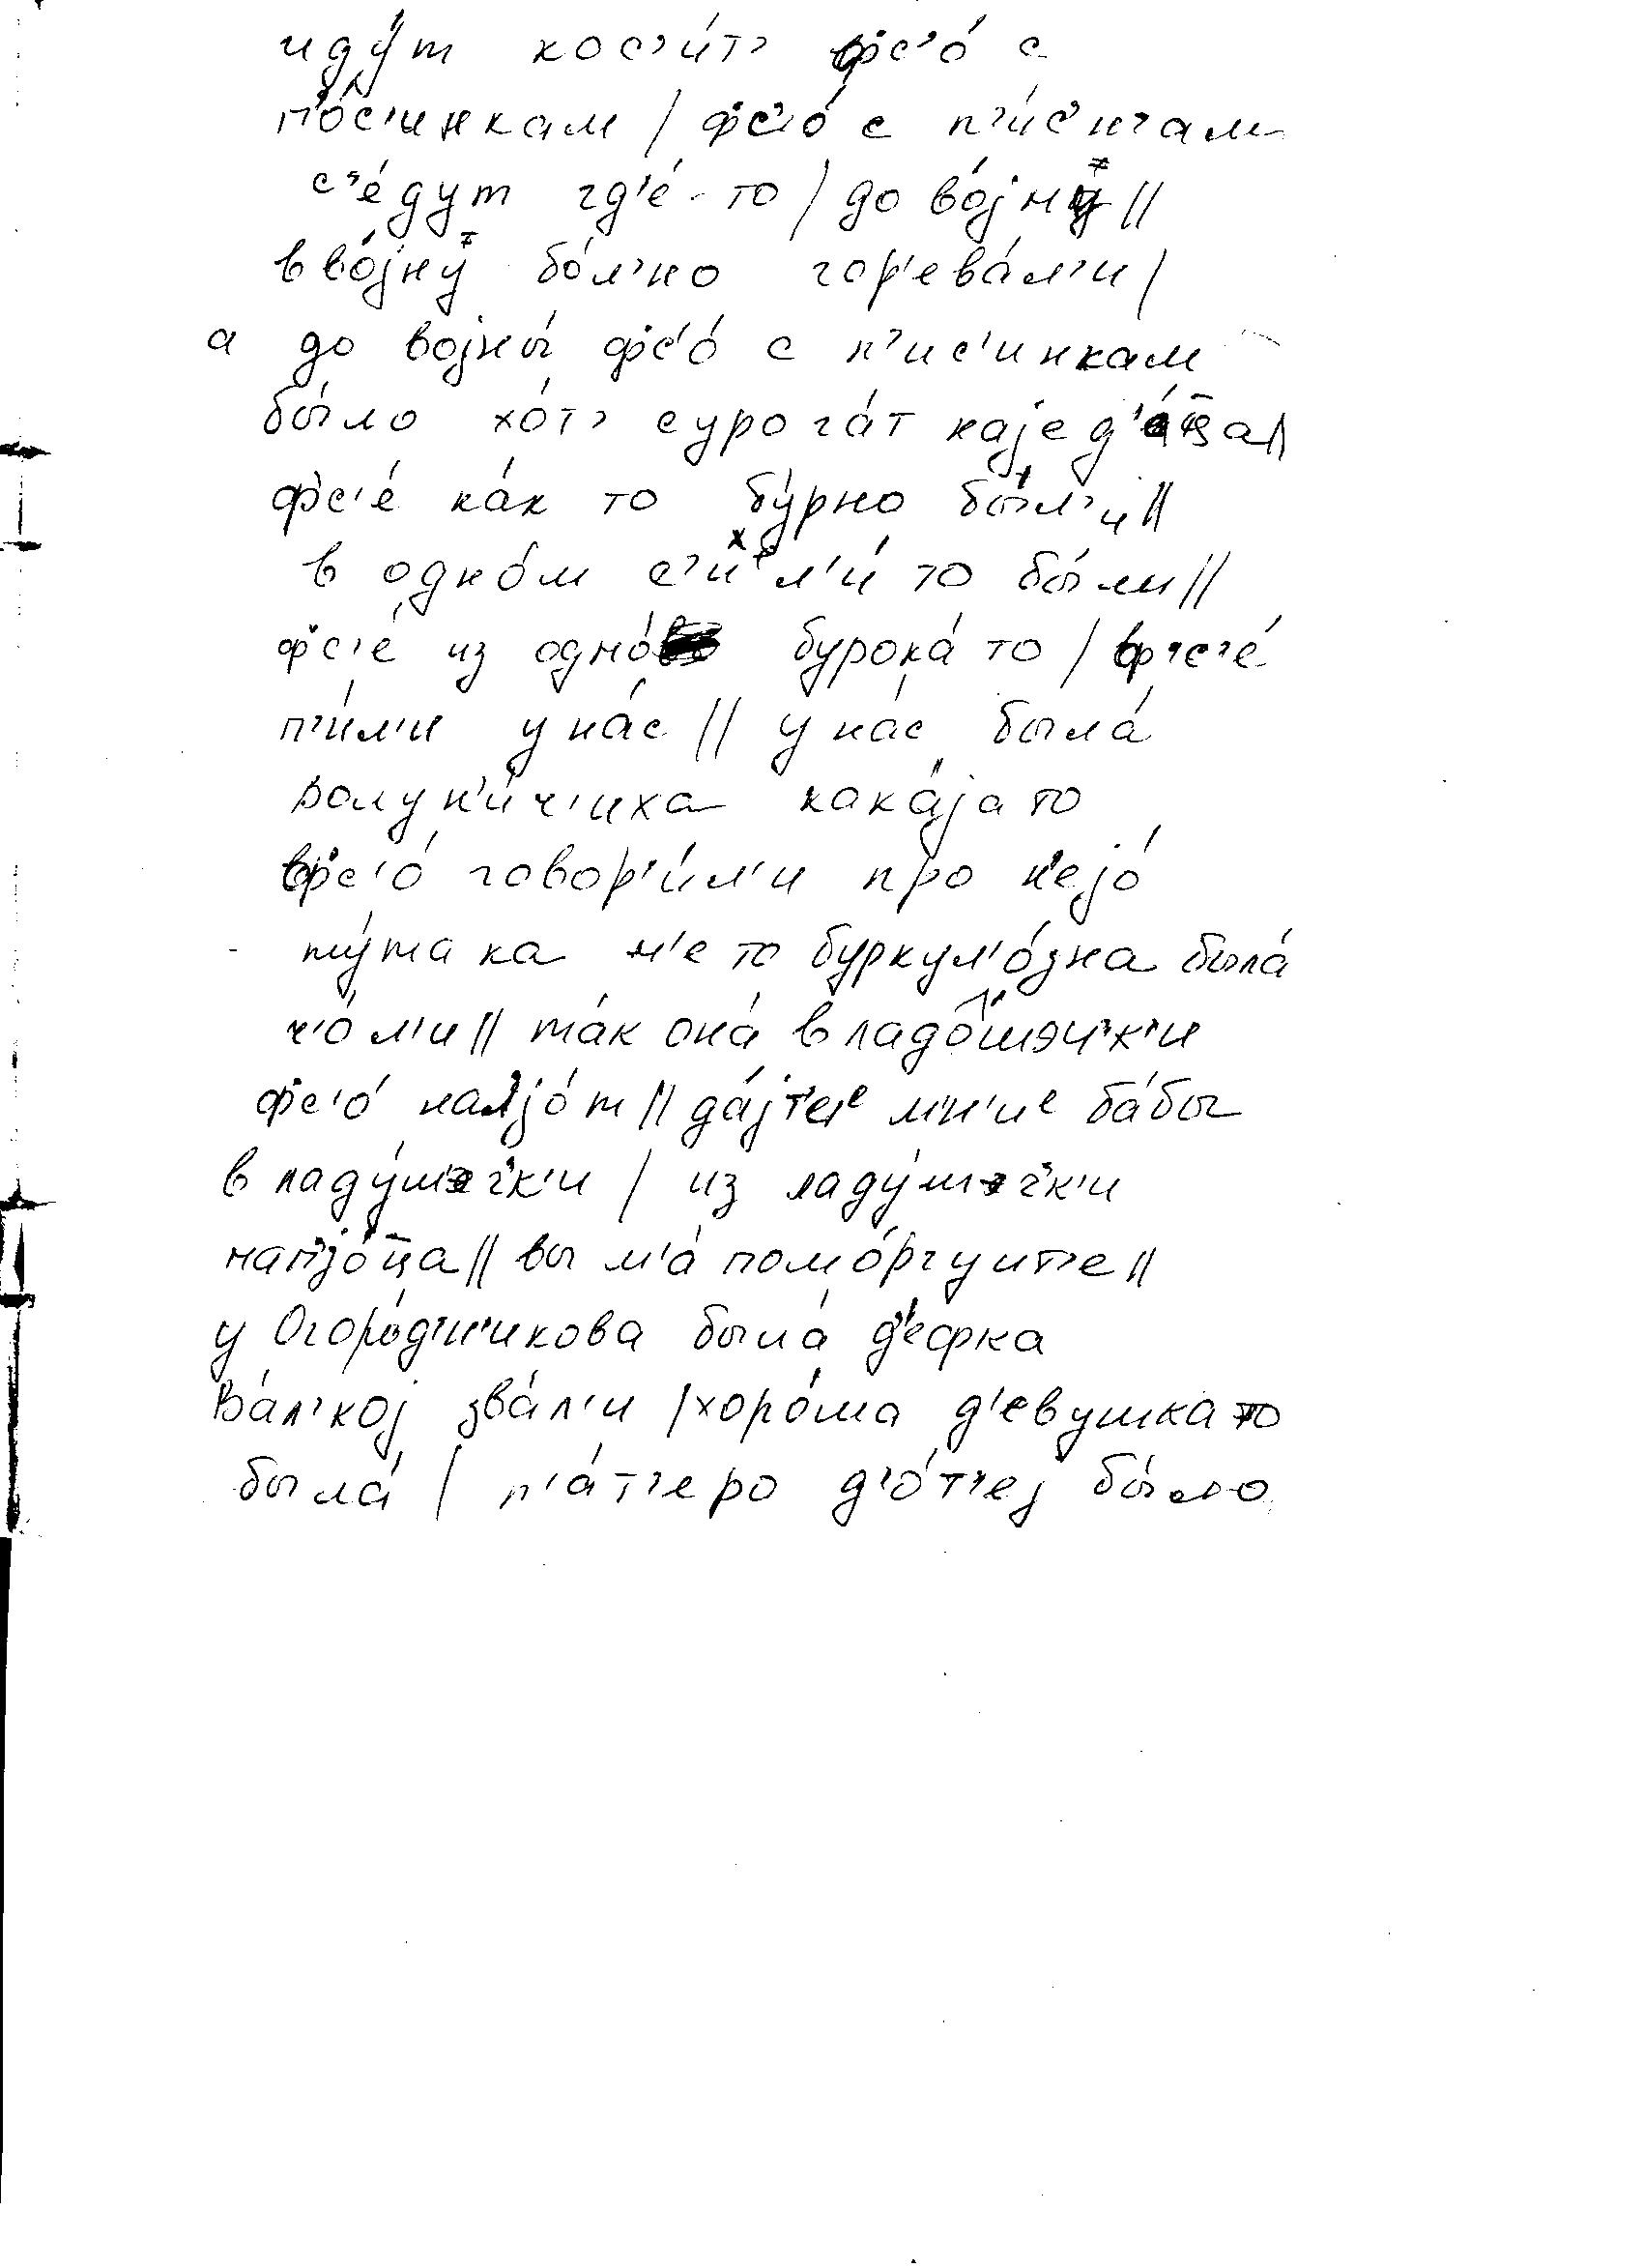 иду́т кос'и́т' фс'о́ с
п'о́с'инкам / фс'о́ с п'и́с'н'ам
с'е́дут гд'е́-то / до во́jну //
в во́jну бо́л'но гор'ева́л'и /
а до воjны́ фс'о́ с п'ис'инкам
бы́ло хо́т' сурога́т наjед'а́ца //
фс'е́ ка́к то бу́рно бы́л'и //
в одно́м с'иел'и́ то бы́ли //
фс'е́ из одно́ бурока́ то / фс'е́
п'и́л'и у на́с // у на́с была́
ролун'и́ч'иха кака́jа то
фс'о́ говор'и́л'и про н'еjо́
ту́та ка н'е то буркул'о́зна была́
ч'о́ л'и // та́к она́ в ладо́шэч'к'и
фс'о́ налjо́т // да́jт'е мн'ие ба́бы
в ладу́шэч'к'и / из ладу́шэч'к'и
нап'jо́ца // вы м'а́ помо́ргуит'е //
у Огоро́дн'икова была́ д'е́фка
Ва́л'коj зва́л'и / хоро́ша д'е́вушка то
была́ / п'а́т'еро д'о́т'еj бы́ло